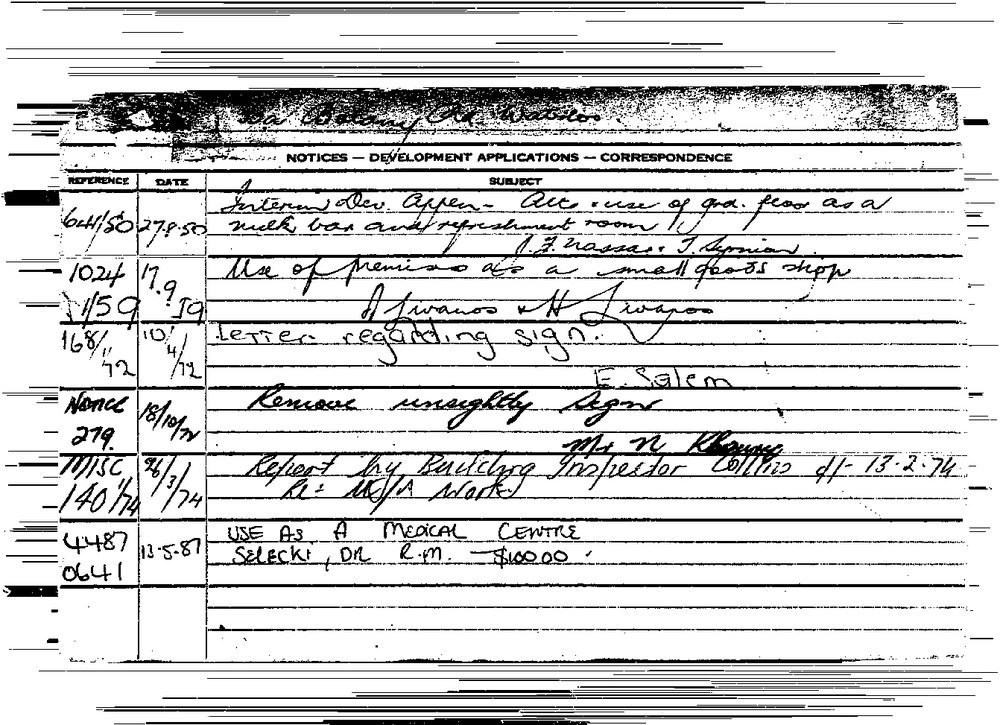 Botany Rd Waterloo.
NOTICES — DEVELOPMENT APPLICATIONS — CORRESPONDENCE
REFERENCE DATE SUBJECT
641/50 27.9.50 Interim Dev. Appln - Alts & use of grd. floor as a
milk bar and refreshment room
J. F. Nassar
1024 17.9 Use of premises as a small goods shop
1/59 59
168/ 10/ Letter regarding sign.
72 4/72
E. Salem
Notice 18/10/72 Remove unsightly signs
279.
Mr N
MISC 26/3 Report by Building Inspector Collins d/- 13.2.74
140/74 /74 Re: Work
4487 13.5.87 USE AS A MEDICAL CENTRE
0641 SELECKI, DR R.M. $10000